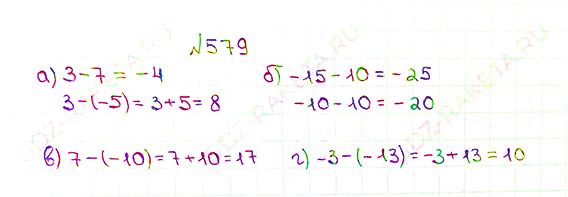 №579
а) 3-7 = -4 б) -15-10 = -25
3-(-5) = 3+5 = 8 -10-10 = -20
в) 7-(-10) = 7+10 = 17 г) -3-(-13) = -3+13 = 10
DZ-RAKETA.RU